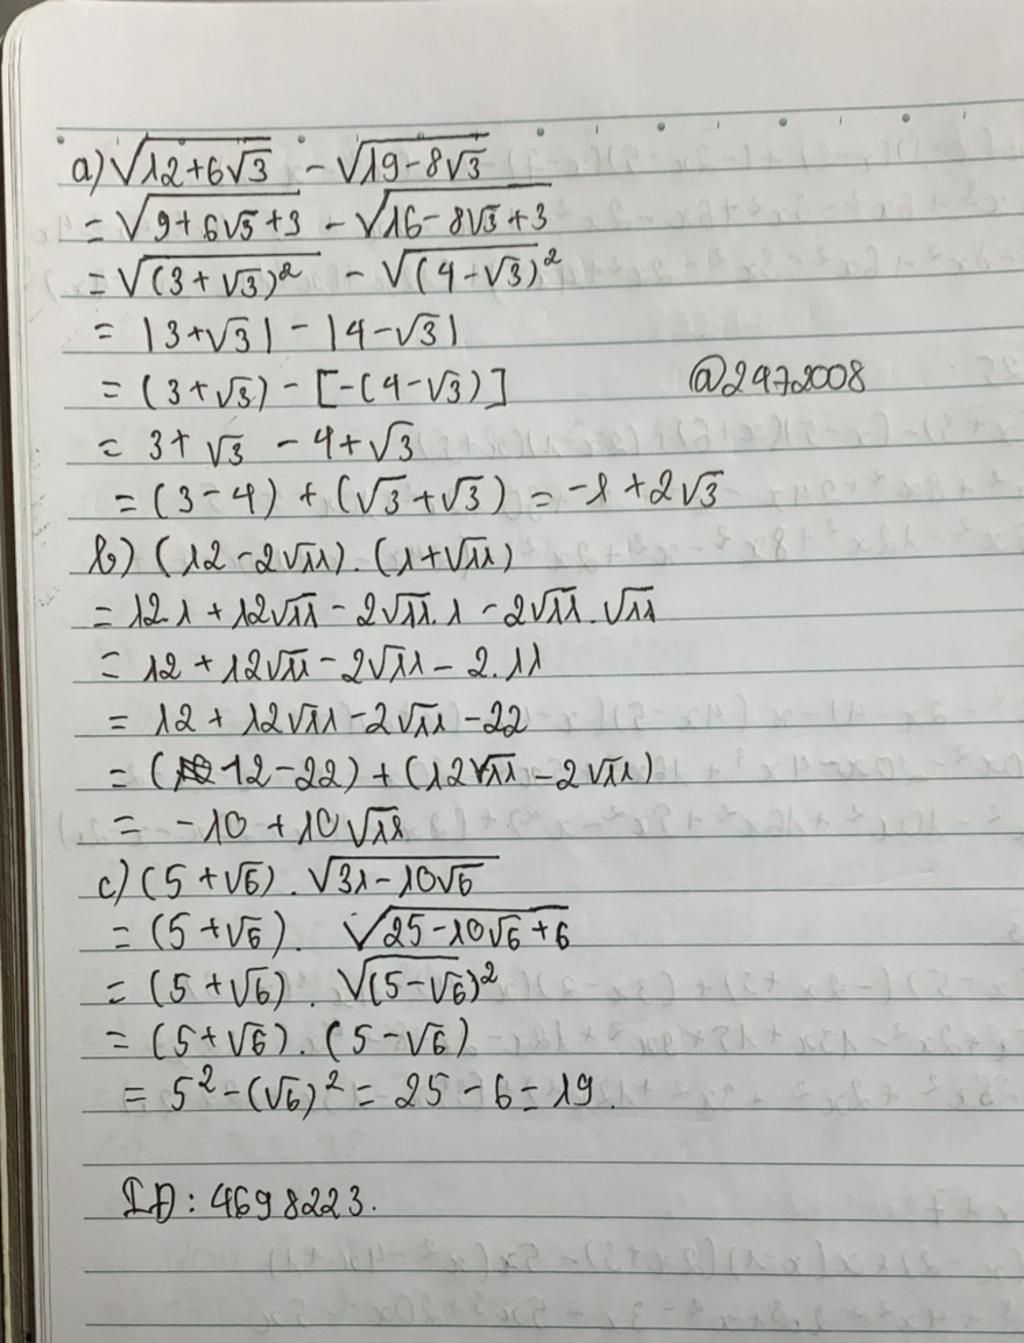 a) √(12+6√3) - √(19-8√3)
= √(9+6√3+3) - √(16-8√3+3)
= √((3+√3)²) - √((4-√3)²)
= |3+√3| - |4-√3|
= (3+√3) - [-(4-√3)] @2472008
= 3+√3 - 4+√3
= (3-4) + (√3+√3) = -1+2√3
b) (12-2√11).(1+√11)
= 12.1 + 12√11 - 2√11.1 - 2√11.√11
= 12 + 12√11 - 2√11 - 2.11
= 12 + 12√11 - 2√11 - 22
= (12-22) + (12√11 - 2√11)
= -10 + 10√11
c) (5+√6).√(31-10√6)
= (5+√6). √(25-10√6+6)
= (5+√6). √((5-√6)²)
= (5+√6).(5-√6)
= 5²-(√6)² = 25-6=19.
ID: 4698223.